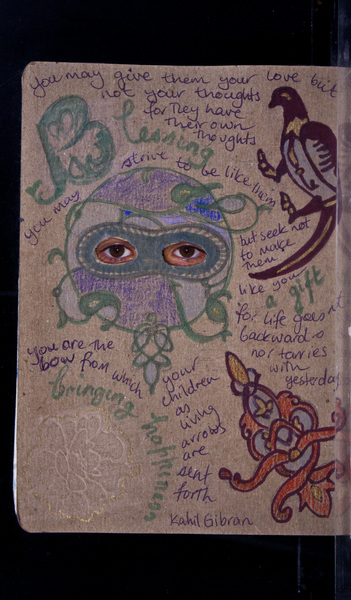 You may give them your love but
not your thoughts
for They have
their own
thoughts
Blessing
you may
strive to be like them
but seek not
to make
them
like you
a gift
for life goesn't
backwards
nor tarries
with
yesterday
you are the
bow from which
bringing
happiness
your
children
as
living
arrows
are
sent
forth
Kahil Gibran